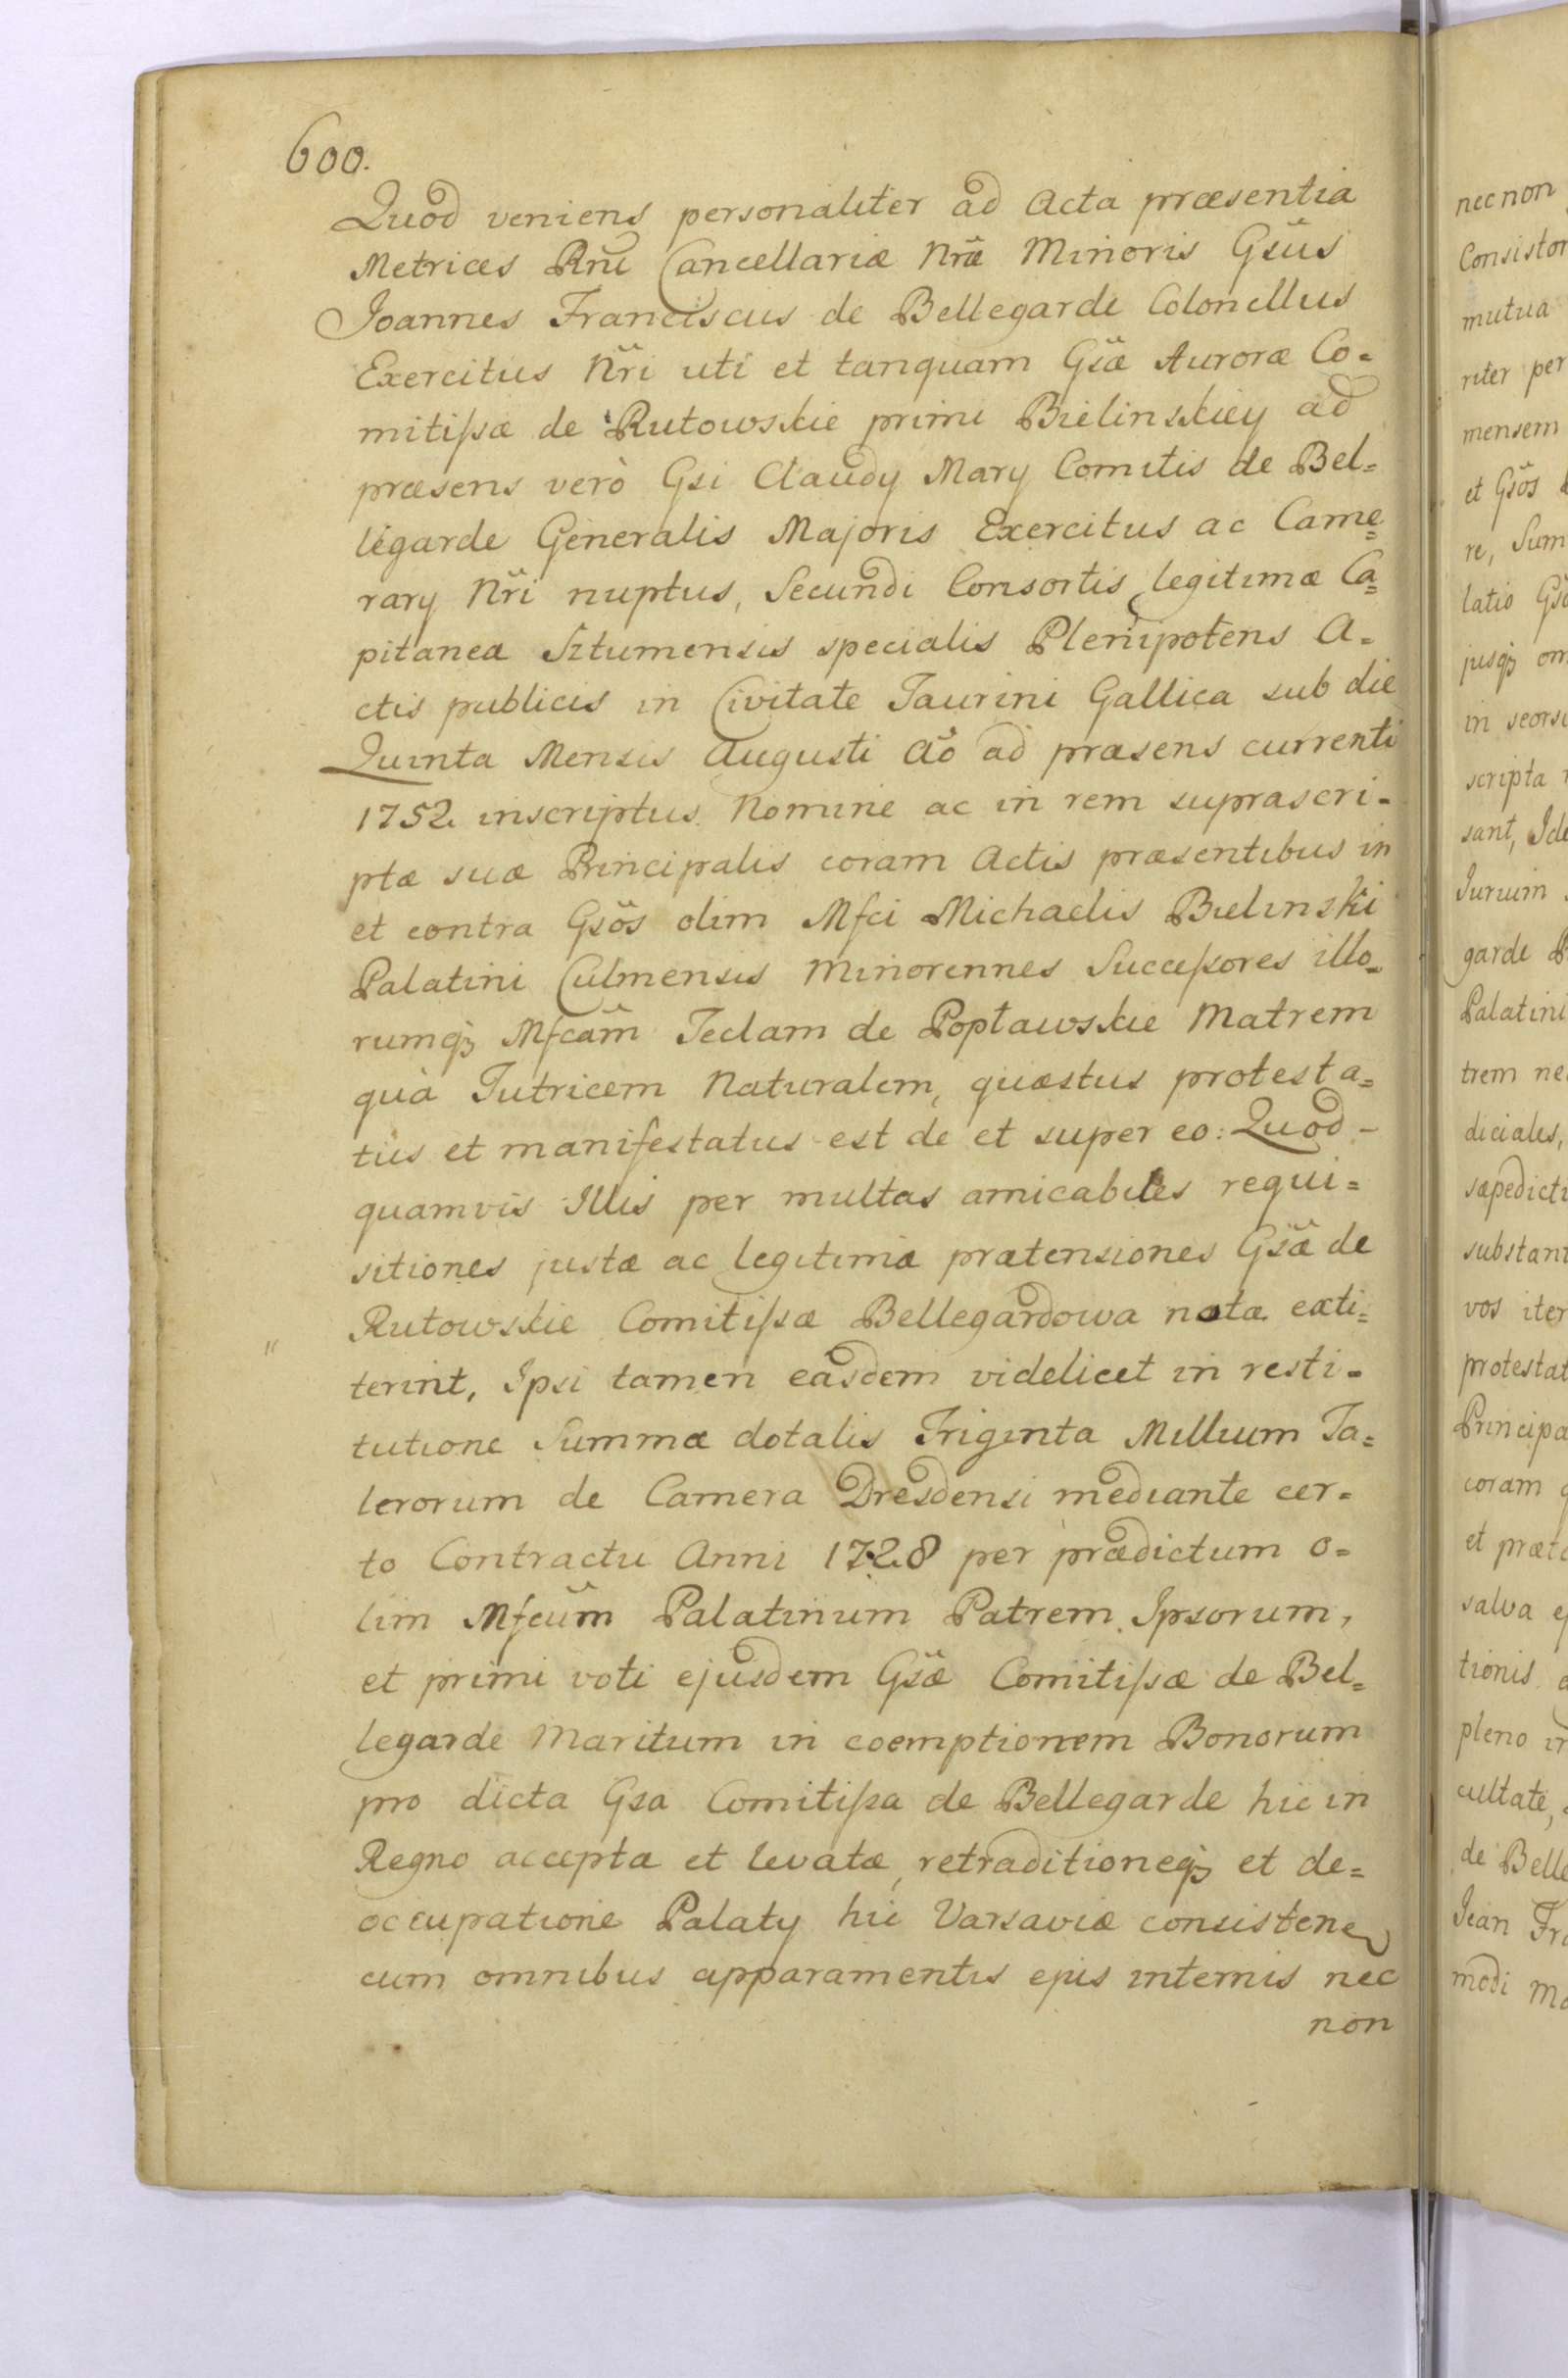 600.
Quod veniens personaliter ad Acta præsentia
Metrices Rñi Cancellariæ Nræ Minoris Gsus
Joannes Franciscus de Bellegarde Colonellus
Exercitus Nri uti et tanquam Gsæ Auroræ Co=
mitissæ de Rutowskie primi Bielinskiey ad
præsens verò Gsi Claudy Mary Comitis de Bel=
legarde Generalis Majoris Exercitus ac Came=
rary Nri nuptus, Secundi Consortis legitimæ Ca=
pitanea Sztumensis specialis Plenipotens A=
ctis publicis in Civitate Taurini Gallica sub die
Quinta Mensis Augusti Aõ ad præsens currenti
1752 inscriptus Nomine ac in rem suprascri=
ptæ suæ Principalis coram Actis præsentibus in
et contra Gsos olim Mfci Michaelis Bielinski
Palatini Culmensis Minorennes Successores illo=
rumq3 Mfcam Teclam de Popławskie Matrem
quà Tutricem Naturalem, quæstus protesta=
tus et manifestatus est de et super eo: Quod –
quamvis Illis per multas amicabiles requi=
sitiones justæ ac legitimæ prætensiones Gsæ de
Rutowskie Comitissæ Bellegardowa notæ exti=
terint, Ipsi tamen easdem videlicet in resti=
tutione Summæ dotalis Triginta Millium Ta=
lerorum de Camera Dresdensi mediante cer=
to Contractu Anni 1728 per prædictum o=
lim Mfcum Palatinum Patrem Ipsorum,
et primi voti ejusdem Gsæ Comitissæ de Bel=
legarde Maritum in coemptionem Bonorum
pro dicta Gsa Comitissa de Bellegarde hic in
Regno accepta et levatæ, retraditioneq3 et de=
occupatione Palaty hic Varsaviæ consisten
cum omnibus apparamentis ejus internis nec
non
necnon
Consistor
mutua
riter per
mensem
et Gsos
re, Sum
latio Gs
jusq3 om
in seors
scripta
sant, Ide
Jurium
garde
Palatini
trem ne
diciales,
sæpedicti
substant
vos iter
protestat
Principa
coram
et præt
salva
tionis
pleno in
cultate,
de Belle
Jean Fra
modi Ma